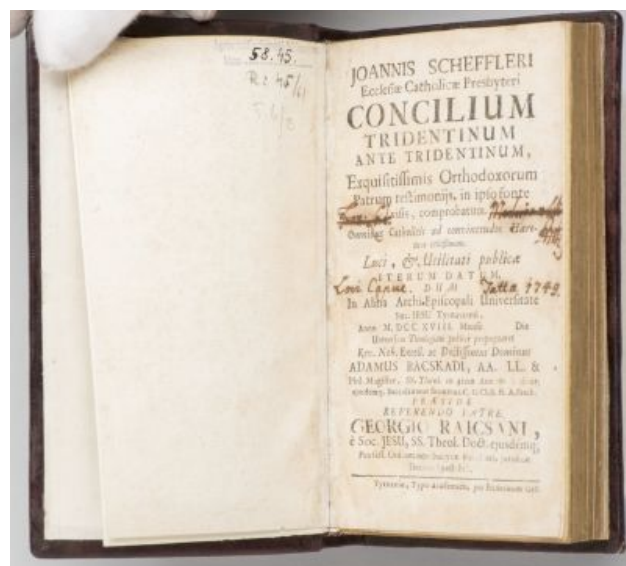 58.45.
R: 45/61
JOANNIS SCHEFFLERI
Ecclesiæ Catholicæ Presbyteri
CONCILIUM
TRIDENTINUM
ANTE TRIDENTINUM,
Exquisitissimis Orthodoxorum
Patrum testimonijs, in ipso fonte
comprobatum.
Omnibus Catholicis ad convincendos Hære-
Luci, & Utilitati publicæ
ITERUM DATUM,
DUM
Tatta 1749.
In Alma Archi-Episcopali Universitate
Soc. JESU Tyrnaviensi,
Anno M. DCC XVIII. Mense Die
Universam Theologiam publicè propugnaret
Rev. Nob. Erud. ac Doctissimus Dominus
ADAMUS BACSKADI, AA. LL. &
Phil. Magister, SS. Theol.
PRÆSIDE
REVERENDO PATRE
GEORGIO RAICSANI,
è Soc. JESU, SS. Theol. Doct. ejusdemq;
Tyrnaviæ, Typis Academicis, per